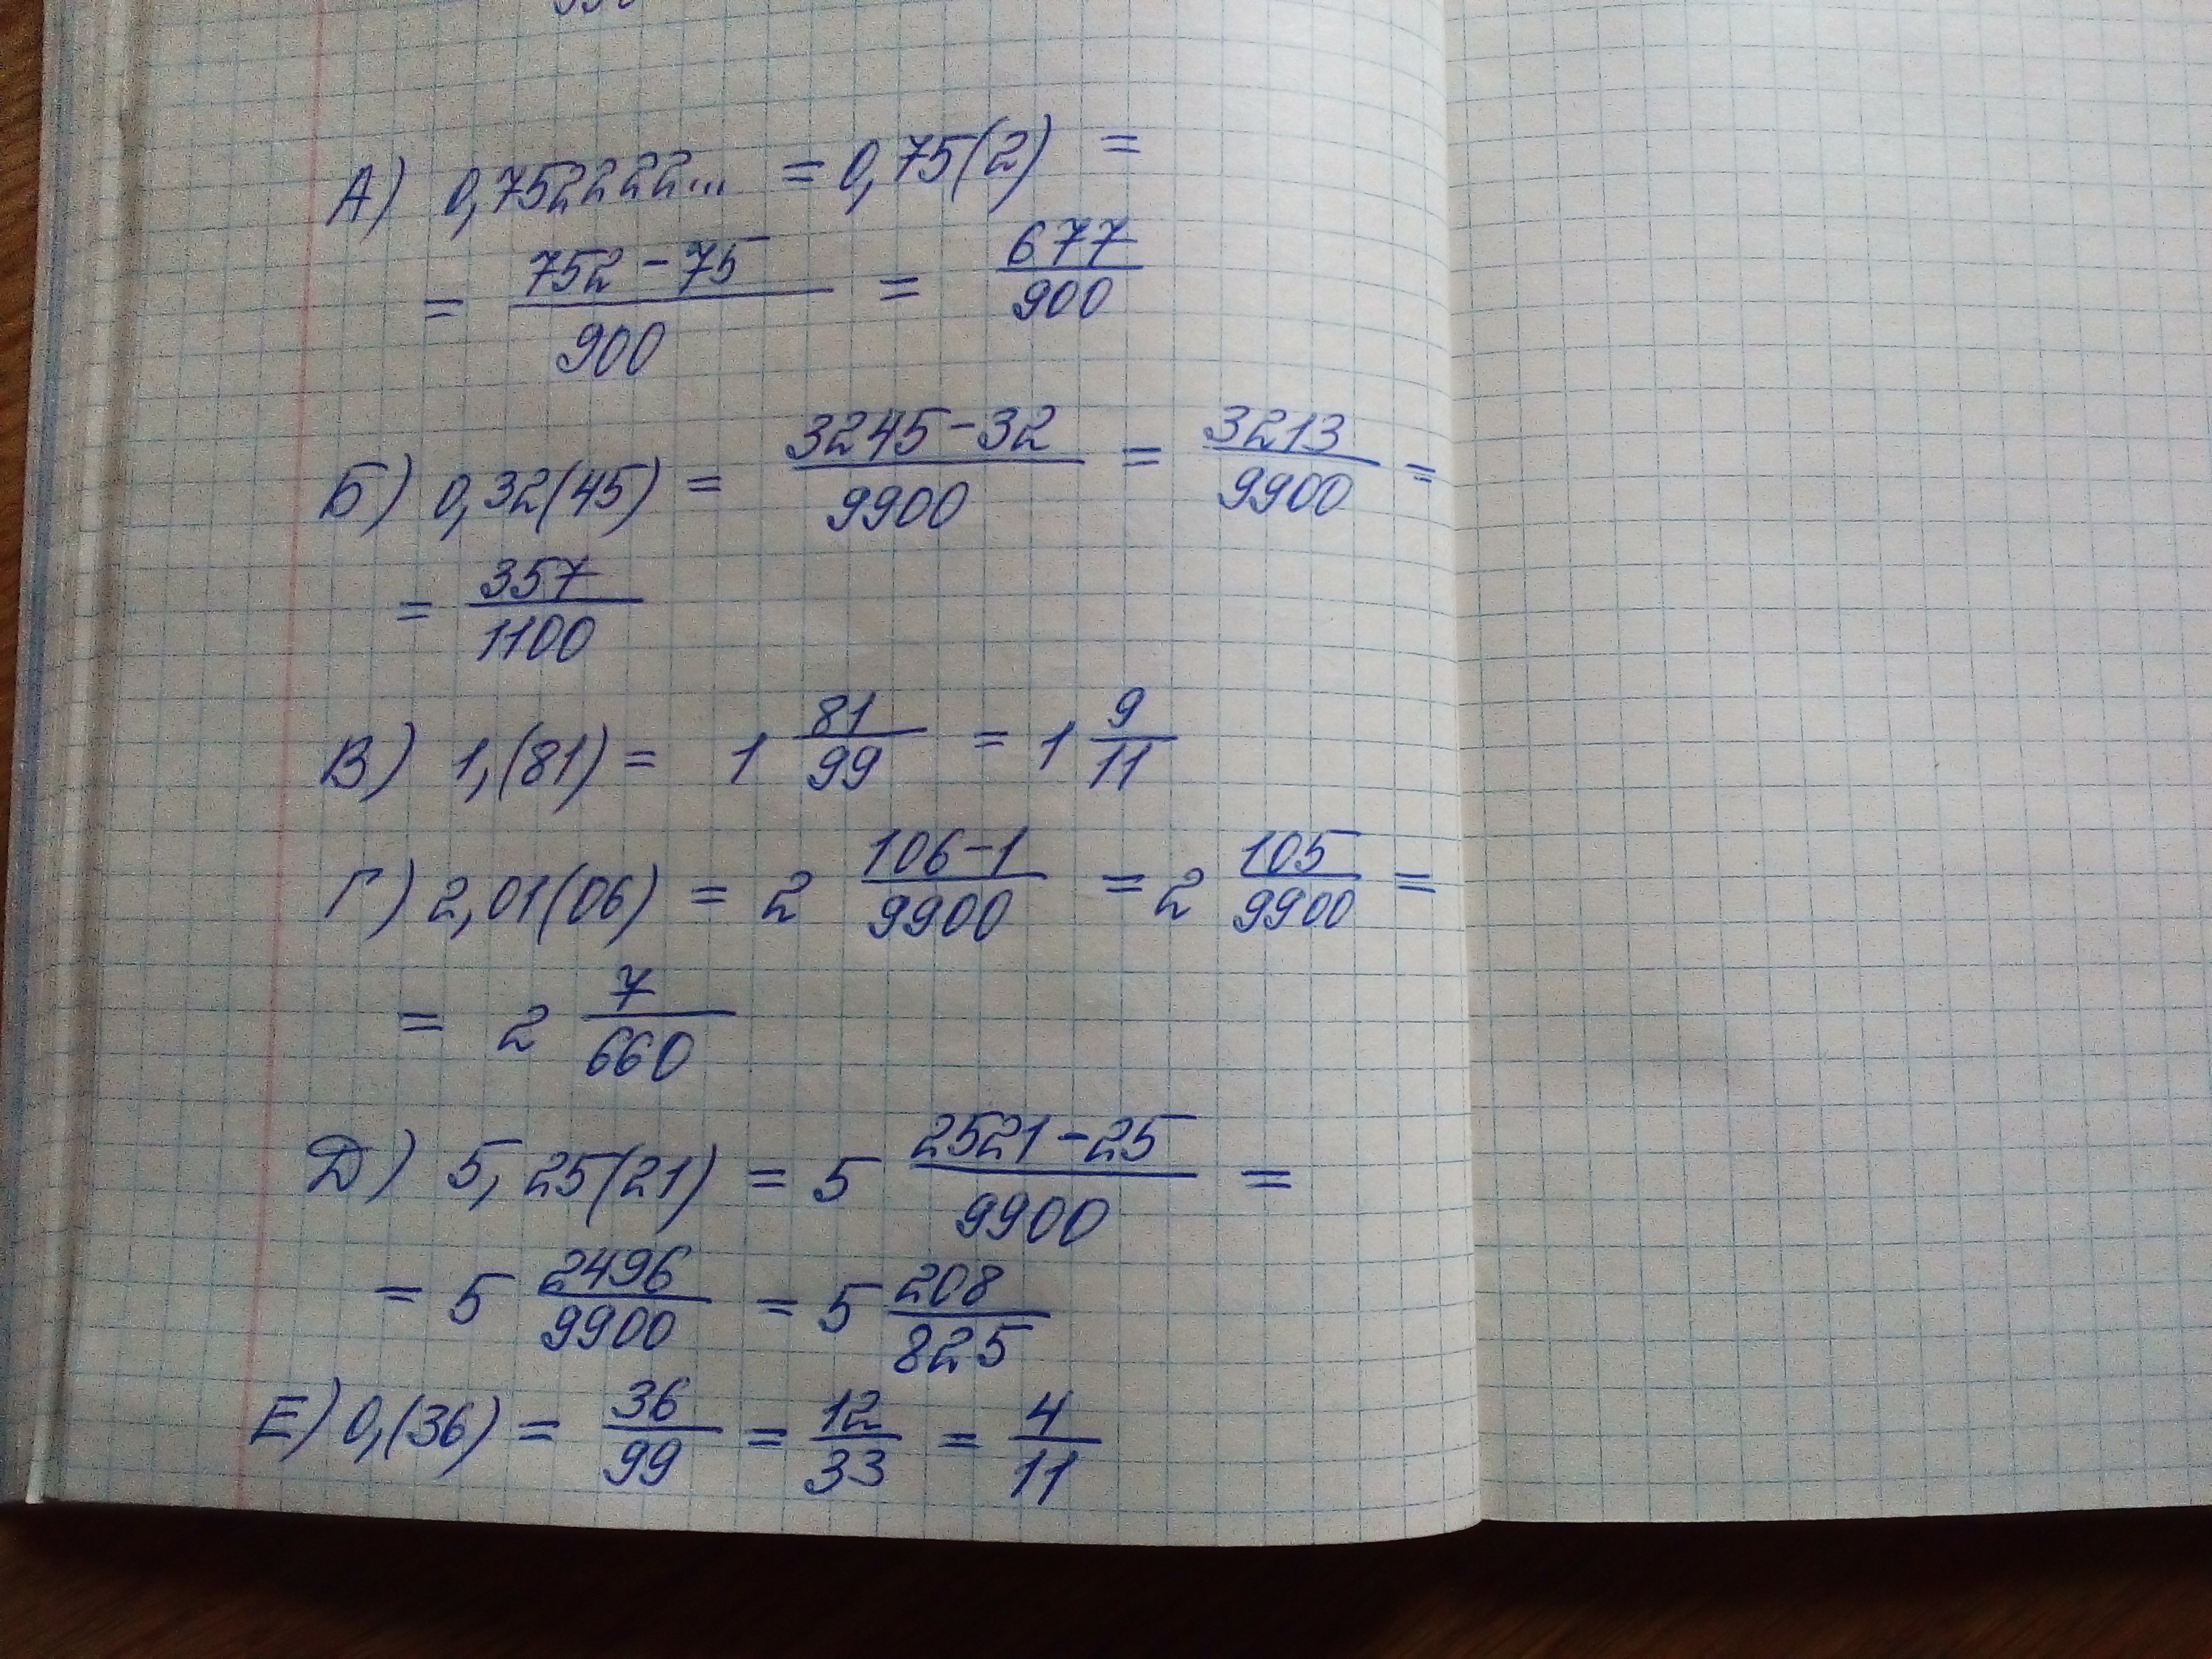 А) 0,752222... = 0,75(2) =
= \frac{752-75}{900} = \frac{677}{900}
Б) 0,32(45) = \frac{3245-32}{9900} = \frac{3213}{9900} =
= \frac{357}{1100}
В) 1,(81) = 1 \frac{81}{99} = 1 \frac{9}{11}
Г) 2,01(06) = 2 \frac{106-1}{9900} = 2 \frac{105}{9900} =
= 2 \frac{7}{660}
Д) 5,25(21) = 5 \frac{2521-25}{9900} =
= 5 \frac{2496}{9900} = 5 \frac{208}{825}
Е) 0,(36) = \frac{36}{99} = \frac{12}{33} = \frac{4}{11}